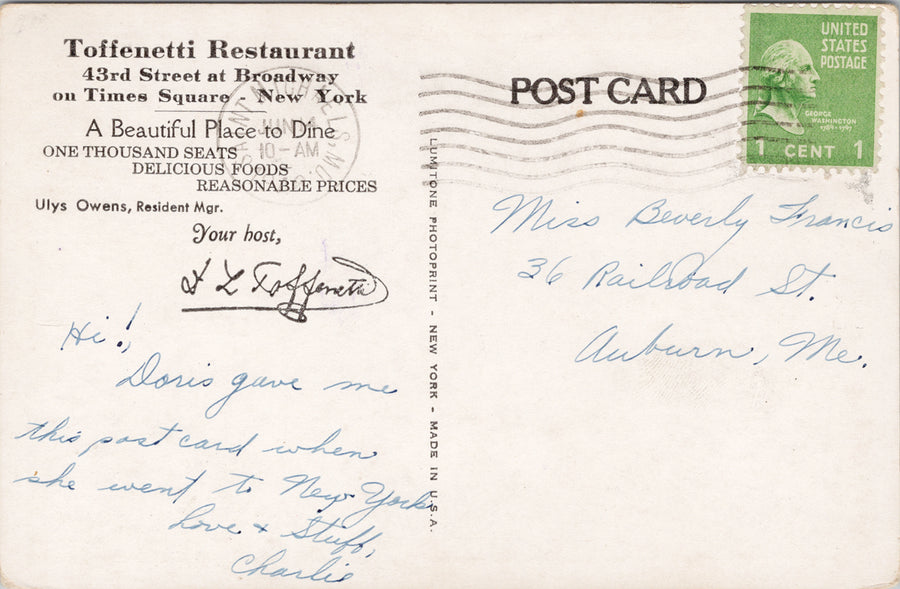 Toffenetti Restaurant
43rd Street at Broadway
on Times Square New York
A Beautiful Place to Dine
ONE THOUSAND SEATS
DELICIOUS FOODS
REASONABLE PRICES
Ulys Owens, Resident Mgr.
Your host,
D L Toffenetti
Hi!,
Doris gave me
this post card when
she went to New York.
Love & Stuff,
Charlie
LUMITONE PHOTOPRINT - NEW YORK - MADE IN U.S.A.
JUN
10-AM
POST CARD
UNITED
STATES
POSTAGE
GEORGE
WASHINGTON
1789-1797
1 CENT 1
Miss Beverly Francis
36 Railroad St.
Auburn, Me.